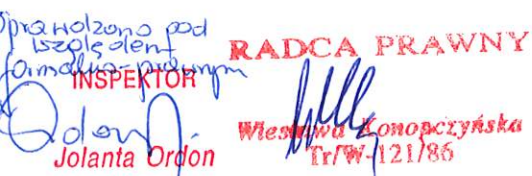 Sprawdzono pod
względem
formalno-prawnym
INSPEKTOR
Jolanta Ordon
RADCA PRAWNY
Wiesława Konopczyńska
Tr/W-121/86